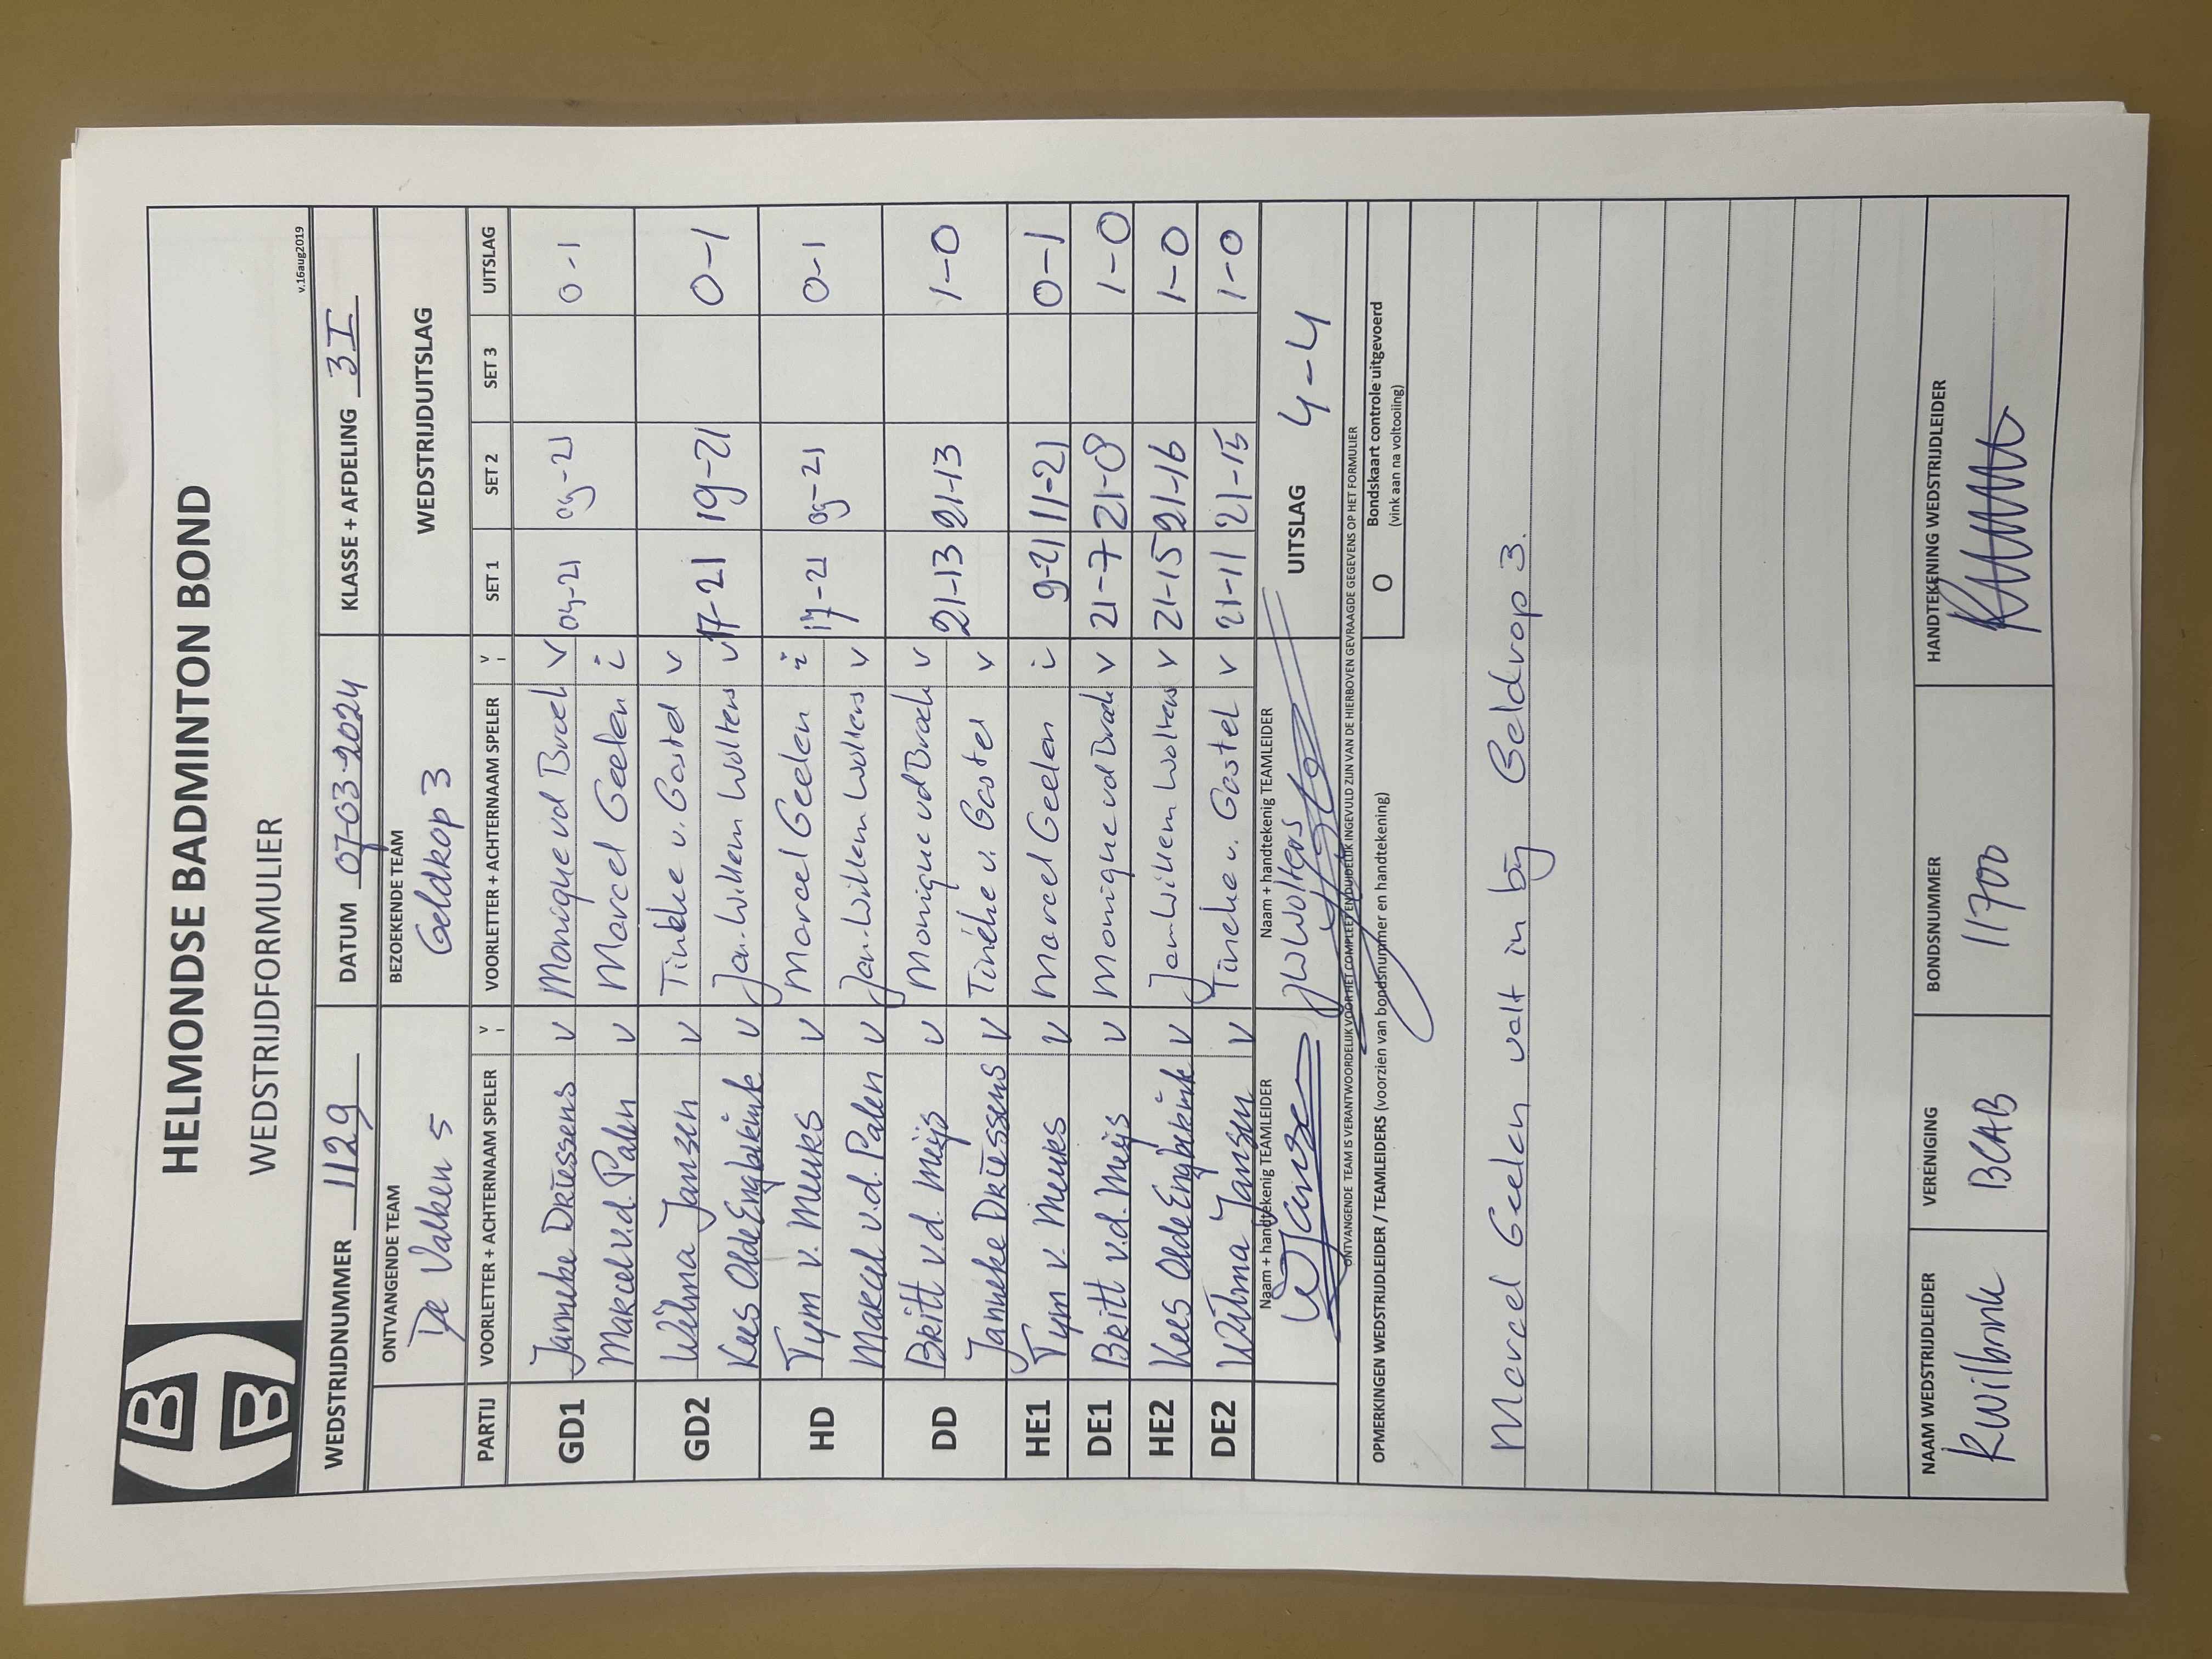 HELMONDSE BADMINTON BOND
WEDSTRIJDFORMULIER
v.16aug2019
WEDSTRIJDNUMMER 1129 DATUM 07-03-2024 KLASSE + AFDELING 3I
ONTVANGENDE TEAM BEZOEKENDE TEAM WEDSTRIJDUITSLAG
De Valken 5 Geldkop 3
PARTIJ VOORLETTER + ACHTERNAAM SPELER V I VOORLETTER + ACHTERNAAM SPELER V I SET 1 SET 2 SET 3 UITSLAG
GD1 Janneke Driessens v Monique vd Broek v 04-21 09-21 0-1
Marcel v.d. Palen v Marcel Geelen i
GD2 Wilma Jansen v Tineke v. Gastel v
Kees Olde Engberink v Jan-Willem Wolters v 17-21 19-21 0-1
HD Tym v. Meuks v Marcel Geelen i 17-21 09-21 0-1
Marcel v.d. Palen v Jan-Willem Wolters v
DD Britt v.d. Meijs v Monique vd Broek v 21-13 21-13 1-0
Janneke Driessens v Tineke v. Gastel v
HE1 Tym v. Meuks v Marcel Geelen i 9-21 11-21 0-1
DE1 Britt v.d. Meijs v Monique vd Broek v 21-7 21-8 1-0
HE2 Kees Olde Engberink v Jan Willem Wolters v 21-15 21-16 1-0
DE2 Wilma Jansen v Tineke v. Gastel v 21-11 21-15 1-0
Naam + handtekenig TEAMLEIDER Naam + handtekenig TEAMLEIDER
WJansen JWWolters UITSLAG 4-4
ONTVANGENDE TEAM IS VERANTWOORDELIJK VOOR HET COMPLEET EN DUIDELIJK INGEVULD ZIJN VAN DE HIERBOVEN GEVRAAGDE GEGEVENS OP HET FORMULIER
OPMERKINGEN WEDSTRIJDLEIDER / TEAMLEIDERS (voorzien van bondsnummer en handtekening) O Bondskaart controle uitgevoerd
(vink aan na voltooiing)
Marcel Geelen valt in bij Geldrop 3.
NAAM WEDSTRIJDLEIDER VERENIGING BONDSNUMMER HANDTEKENING WEDSTRIJDLEIDER
Kwilbrink BCAB 11700